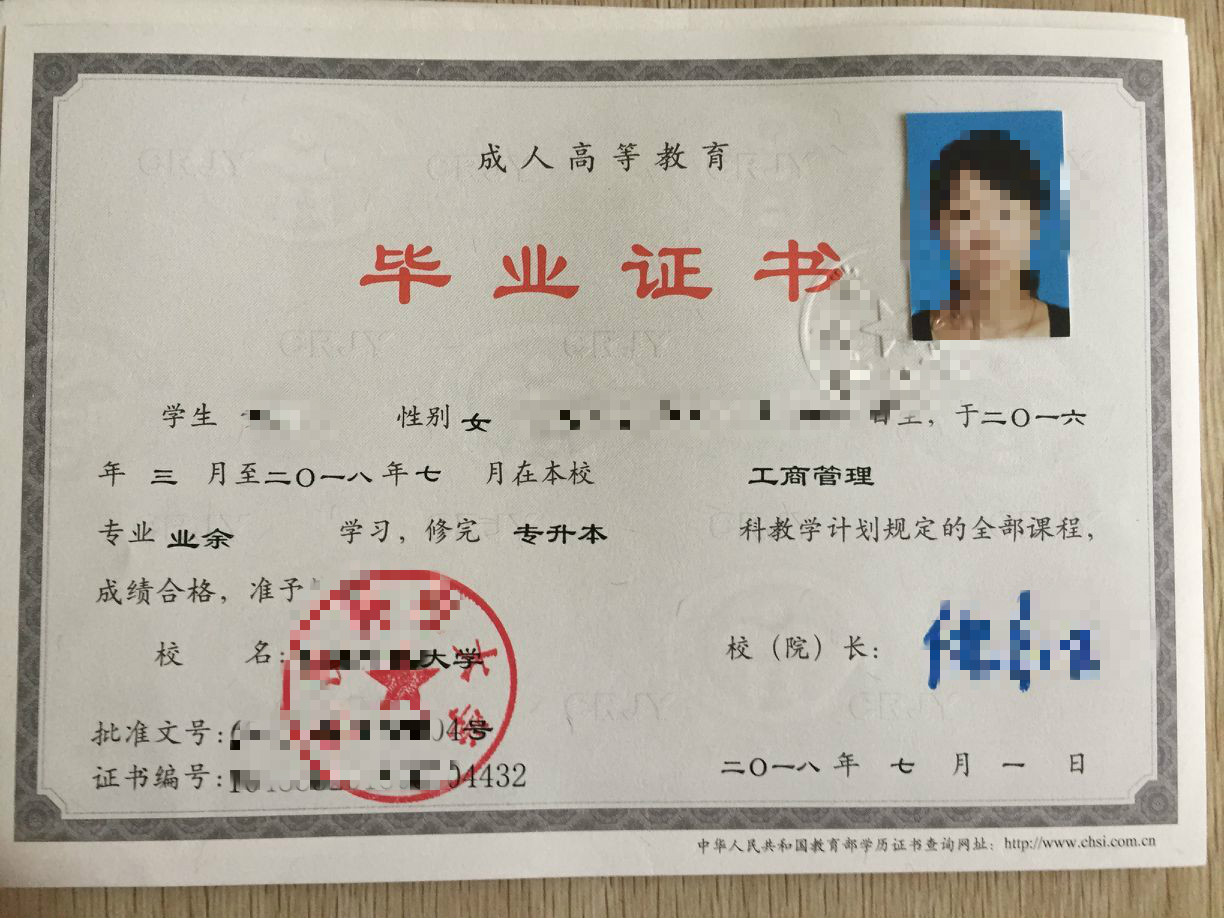 成人高等教育
毕业证书
学生 性别 女 于二〇一六
年 三 月至二〇一八年七 月在本校 工商管理
专业 业余 学习，修完 专升本 科教学计划规定的全部课程，
成绩合格，准予
校 名： 大学 校（院）长：
批准文号： 04号
证书编号： 04432 二〇一八年 七 月 一 日
中华人民共和国教育部学历证书查询网址：http://www.chsi.com.cn